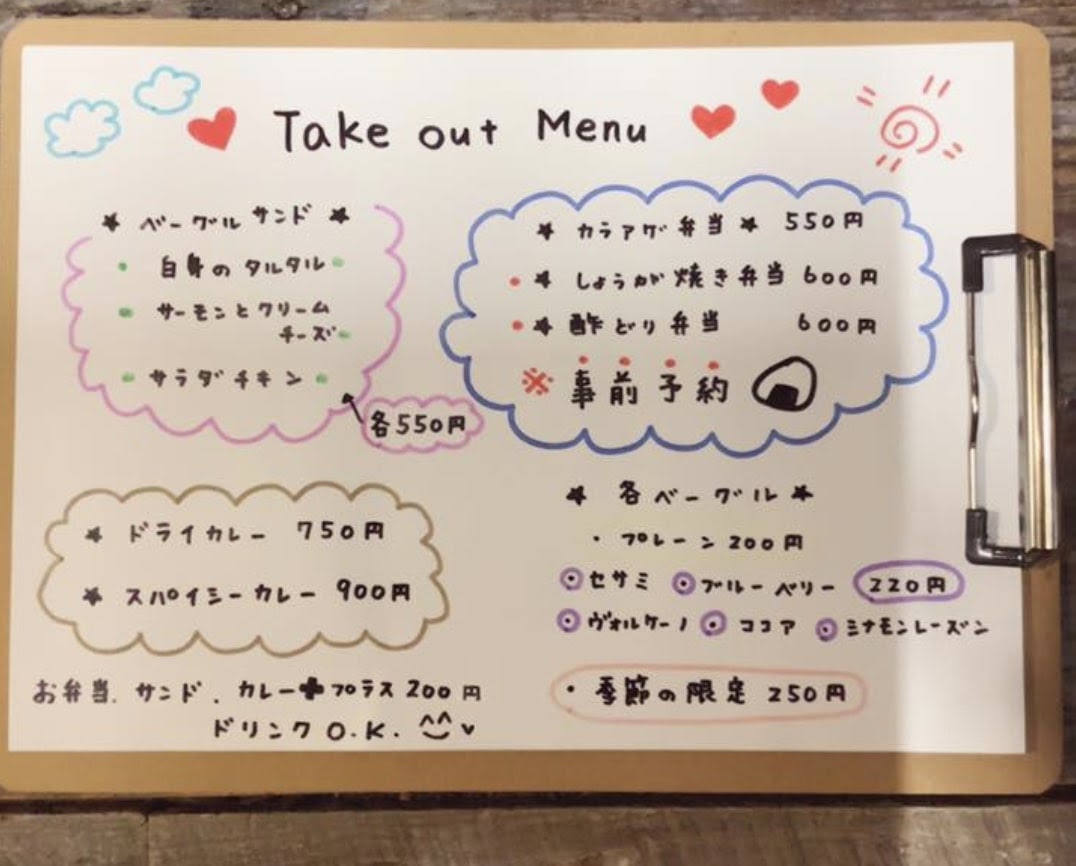 Take out Menu
★ ベーグルサンド ★
・ 白身のタルタル ・
・ サーモンとクリーム
チーズ ・
・ サラダチキン ・
各550円
★ カラアゲ弁当 ★ 550円
・★ しょうが焼き弁当 600円
・★ 酢どり弁当 600円
※ 事前予約
★ ドライカレー 750円
★ スパイシーカレー 900円
お弁当、サンド、カレー✚プラス200円
ドリンク O.K.
★ 各ベーグル ★
・プレーン 200円
◎セサミ ◎ブルーベリー 220円
◎ヴォルケーノ ◎ココア ◎シナモンレーズン
・季節の限定 250円